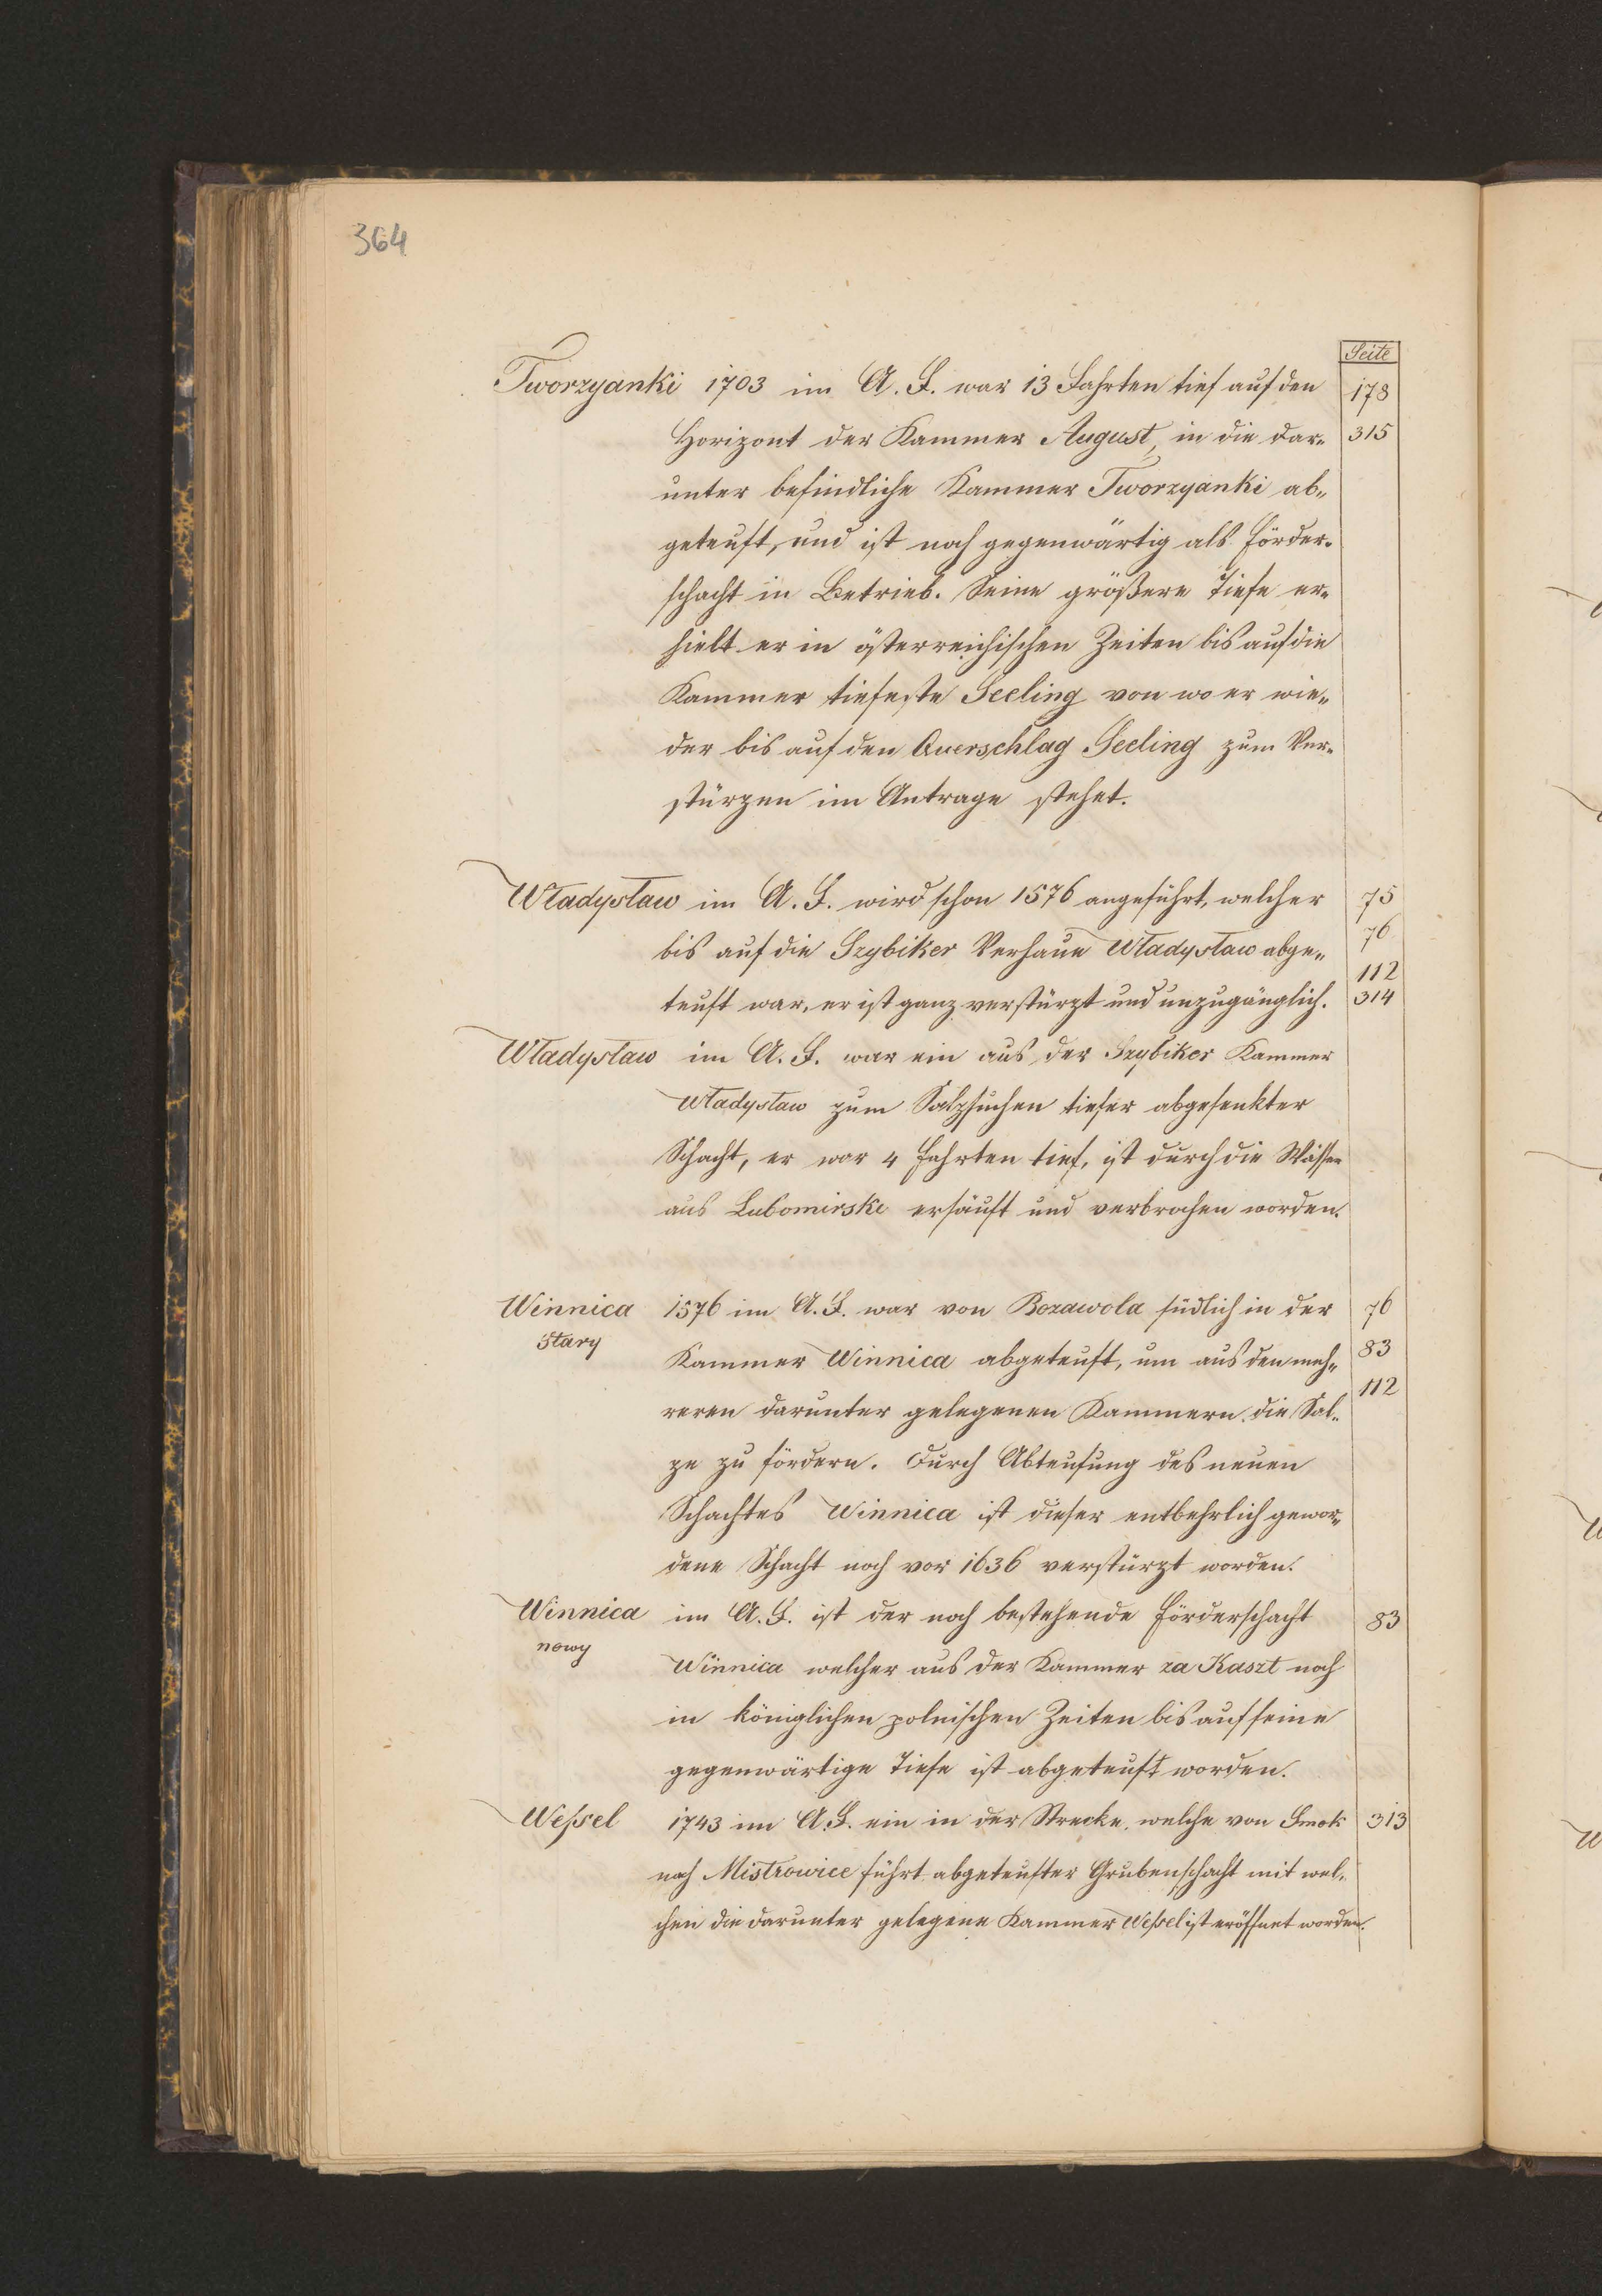 364
Seite
Tworzyanki 1703 im A. F. war 13 Fahrten tief auf den 178
Horizont der Kammer August, in die dar- 315
unter befindliche Kammer Tworzyanki ab-
geteuft, und ist noch gegenwärtig als Förder-
schacht in Betrieb. Seine größere Tiefe er-
hielt er in österreichischen Zeiten bis auf die
Kammer tiefeste Seeling von wo er wie-
der bis auf den Querschlag Seeling zum Ver-
stürzen im Antrage stehet.
Władysław im A. F. wird schon 1576 angeführt, welcher 75
bis auf die Szybiker Verhaue Władysław abge- 76
112
teuft war, er ist ganz verstürzt und unzugänglich. 314
Władysław im A. F. war ein aus der Szybiker Kammer
Władysław zum Salzsuchen tiefer abgesenkter
Schacht, er war 4 Fahrten tief, ist durch die Wässer
aus Lubomirski ersäuft und verbrochen worden.
Winnica 1576 im A. F. war von Bozawola südlich in der 76
stary
Kammer Winnica abgeteuft, um aus den meh- 83
112
reren darunter gelegenen Kammern die Sal-
ze zu fördern. Durch Abteufung des neuen
Schachtes Winnica ist dieser entbehrlich gewor-
dene Schacht noch vor 1636 verstürzt worden.
Winnica im A. F. ist der noch bestehende Förderschacht 83
nowy
Winnica welcher aus der Kammer za Kaszt noch
in königlichen polnischen Zeiten bis auf seine
gegenwärtige Tiefe ist abgeteuft worden.
Weſsel 1743 im A. F. ein in der Strecke, welche von Smok 313
nach Mistrowice führt abgeteufter Grubenschacht mit wel-
chen die darunter gelegene Kammer Weſsel ist eröffnet worden.